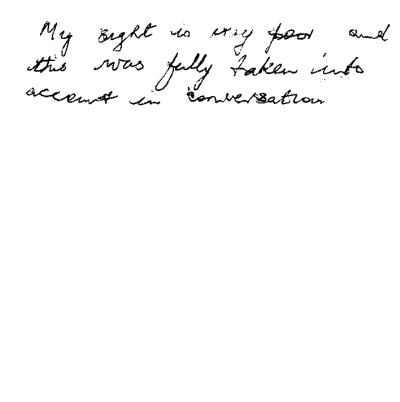 My sight is very poor and
this was fully taken into
account in conversation